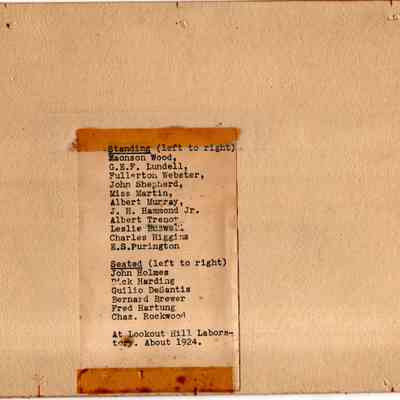 Standing (left to right)
Wood,
G.E.F. Lundell,
Fullerton Webster,
John Shepherd,
Miss Martin,
Albert Murray,
J. H. Hammond Jr.
Albert Trenor
Leslie Buswell
Charles Higgins
E.S.Purington
Seated (left to right)
John Holmes
Dick Harding
Guilio DeSantis
Bernard Brewer
Fred Hartung
Chas. Rockwood
At Lookout Hill Labora-
tory. About 1924.